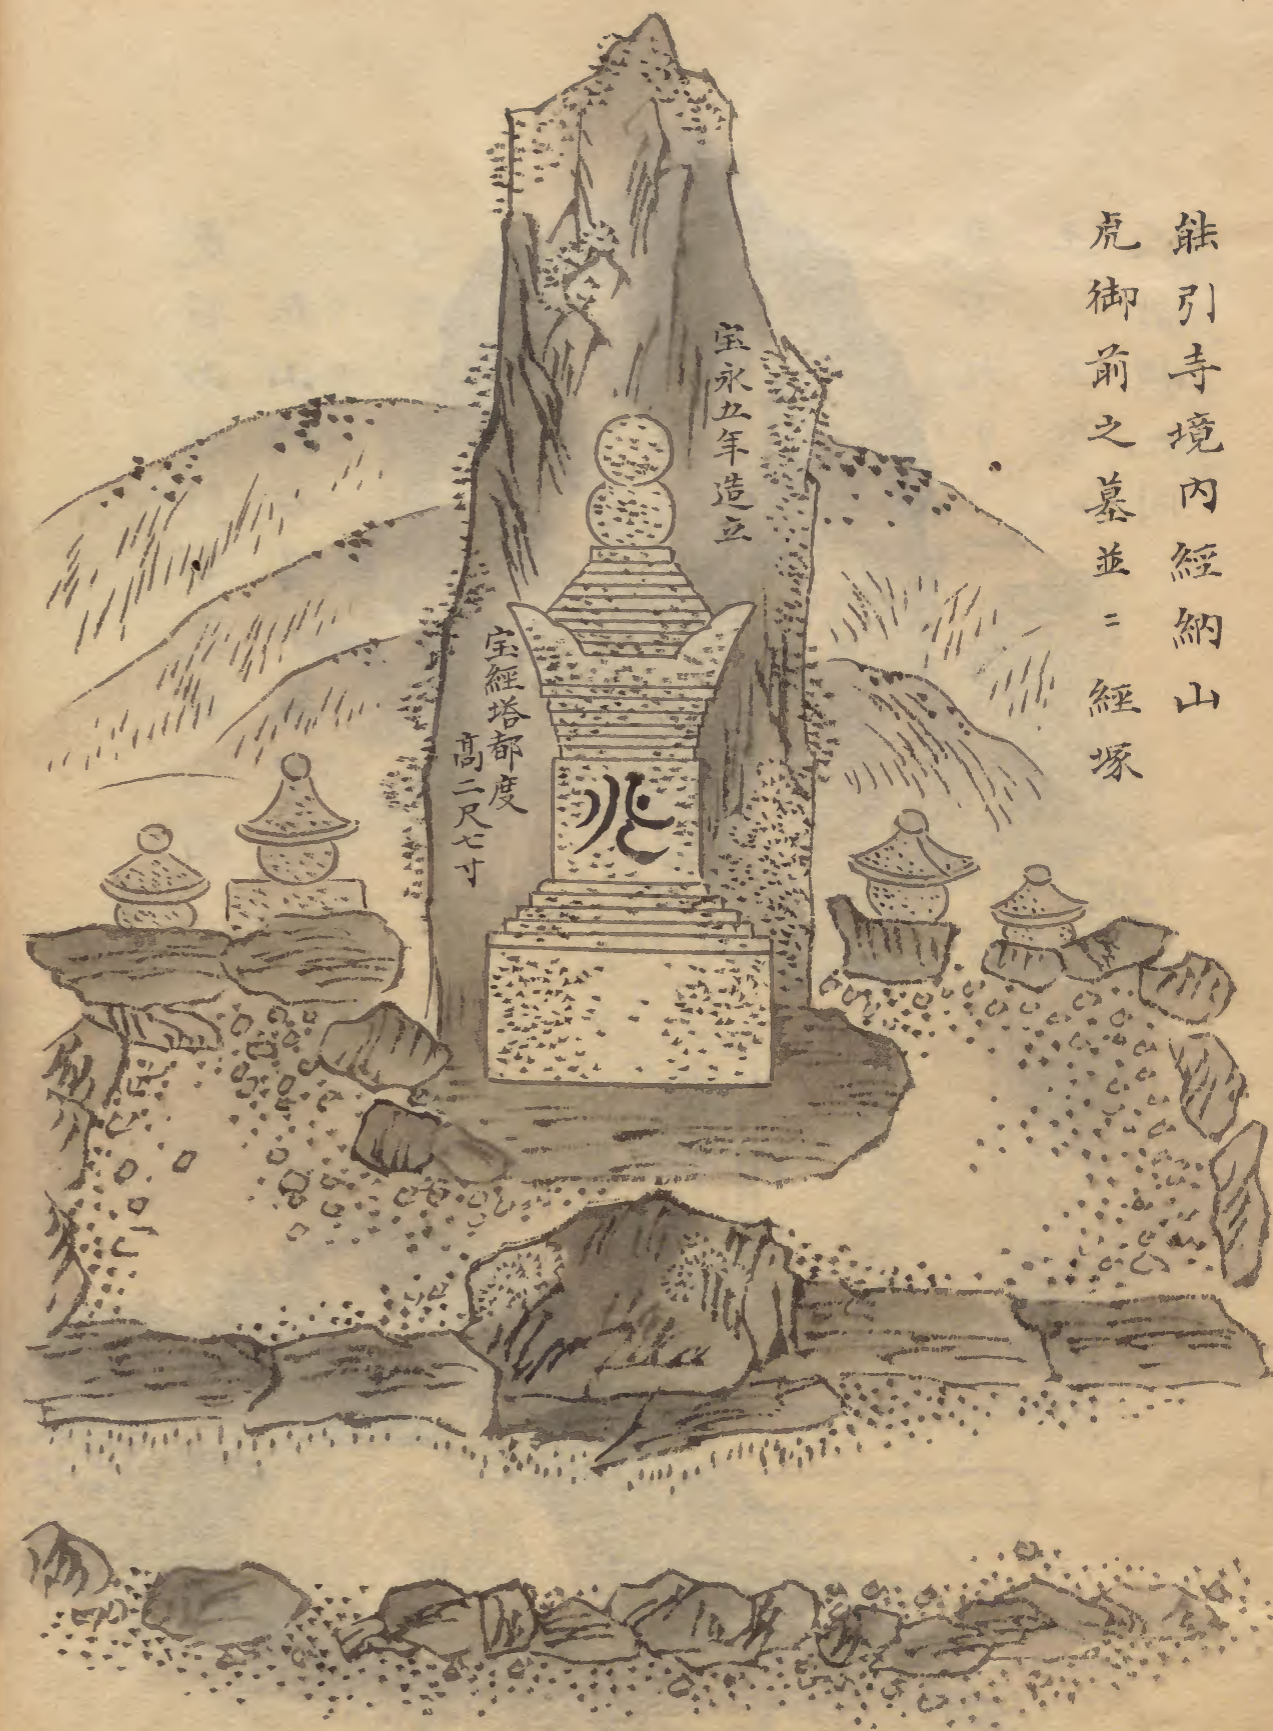 能引寺境内經納山
虎御前之墓並ニ經塚
宝永五年造立
宝經塔都度
高二尺七寸